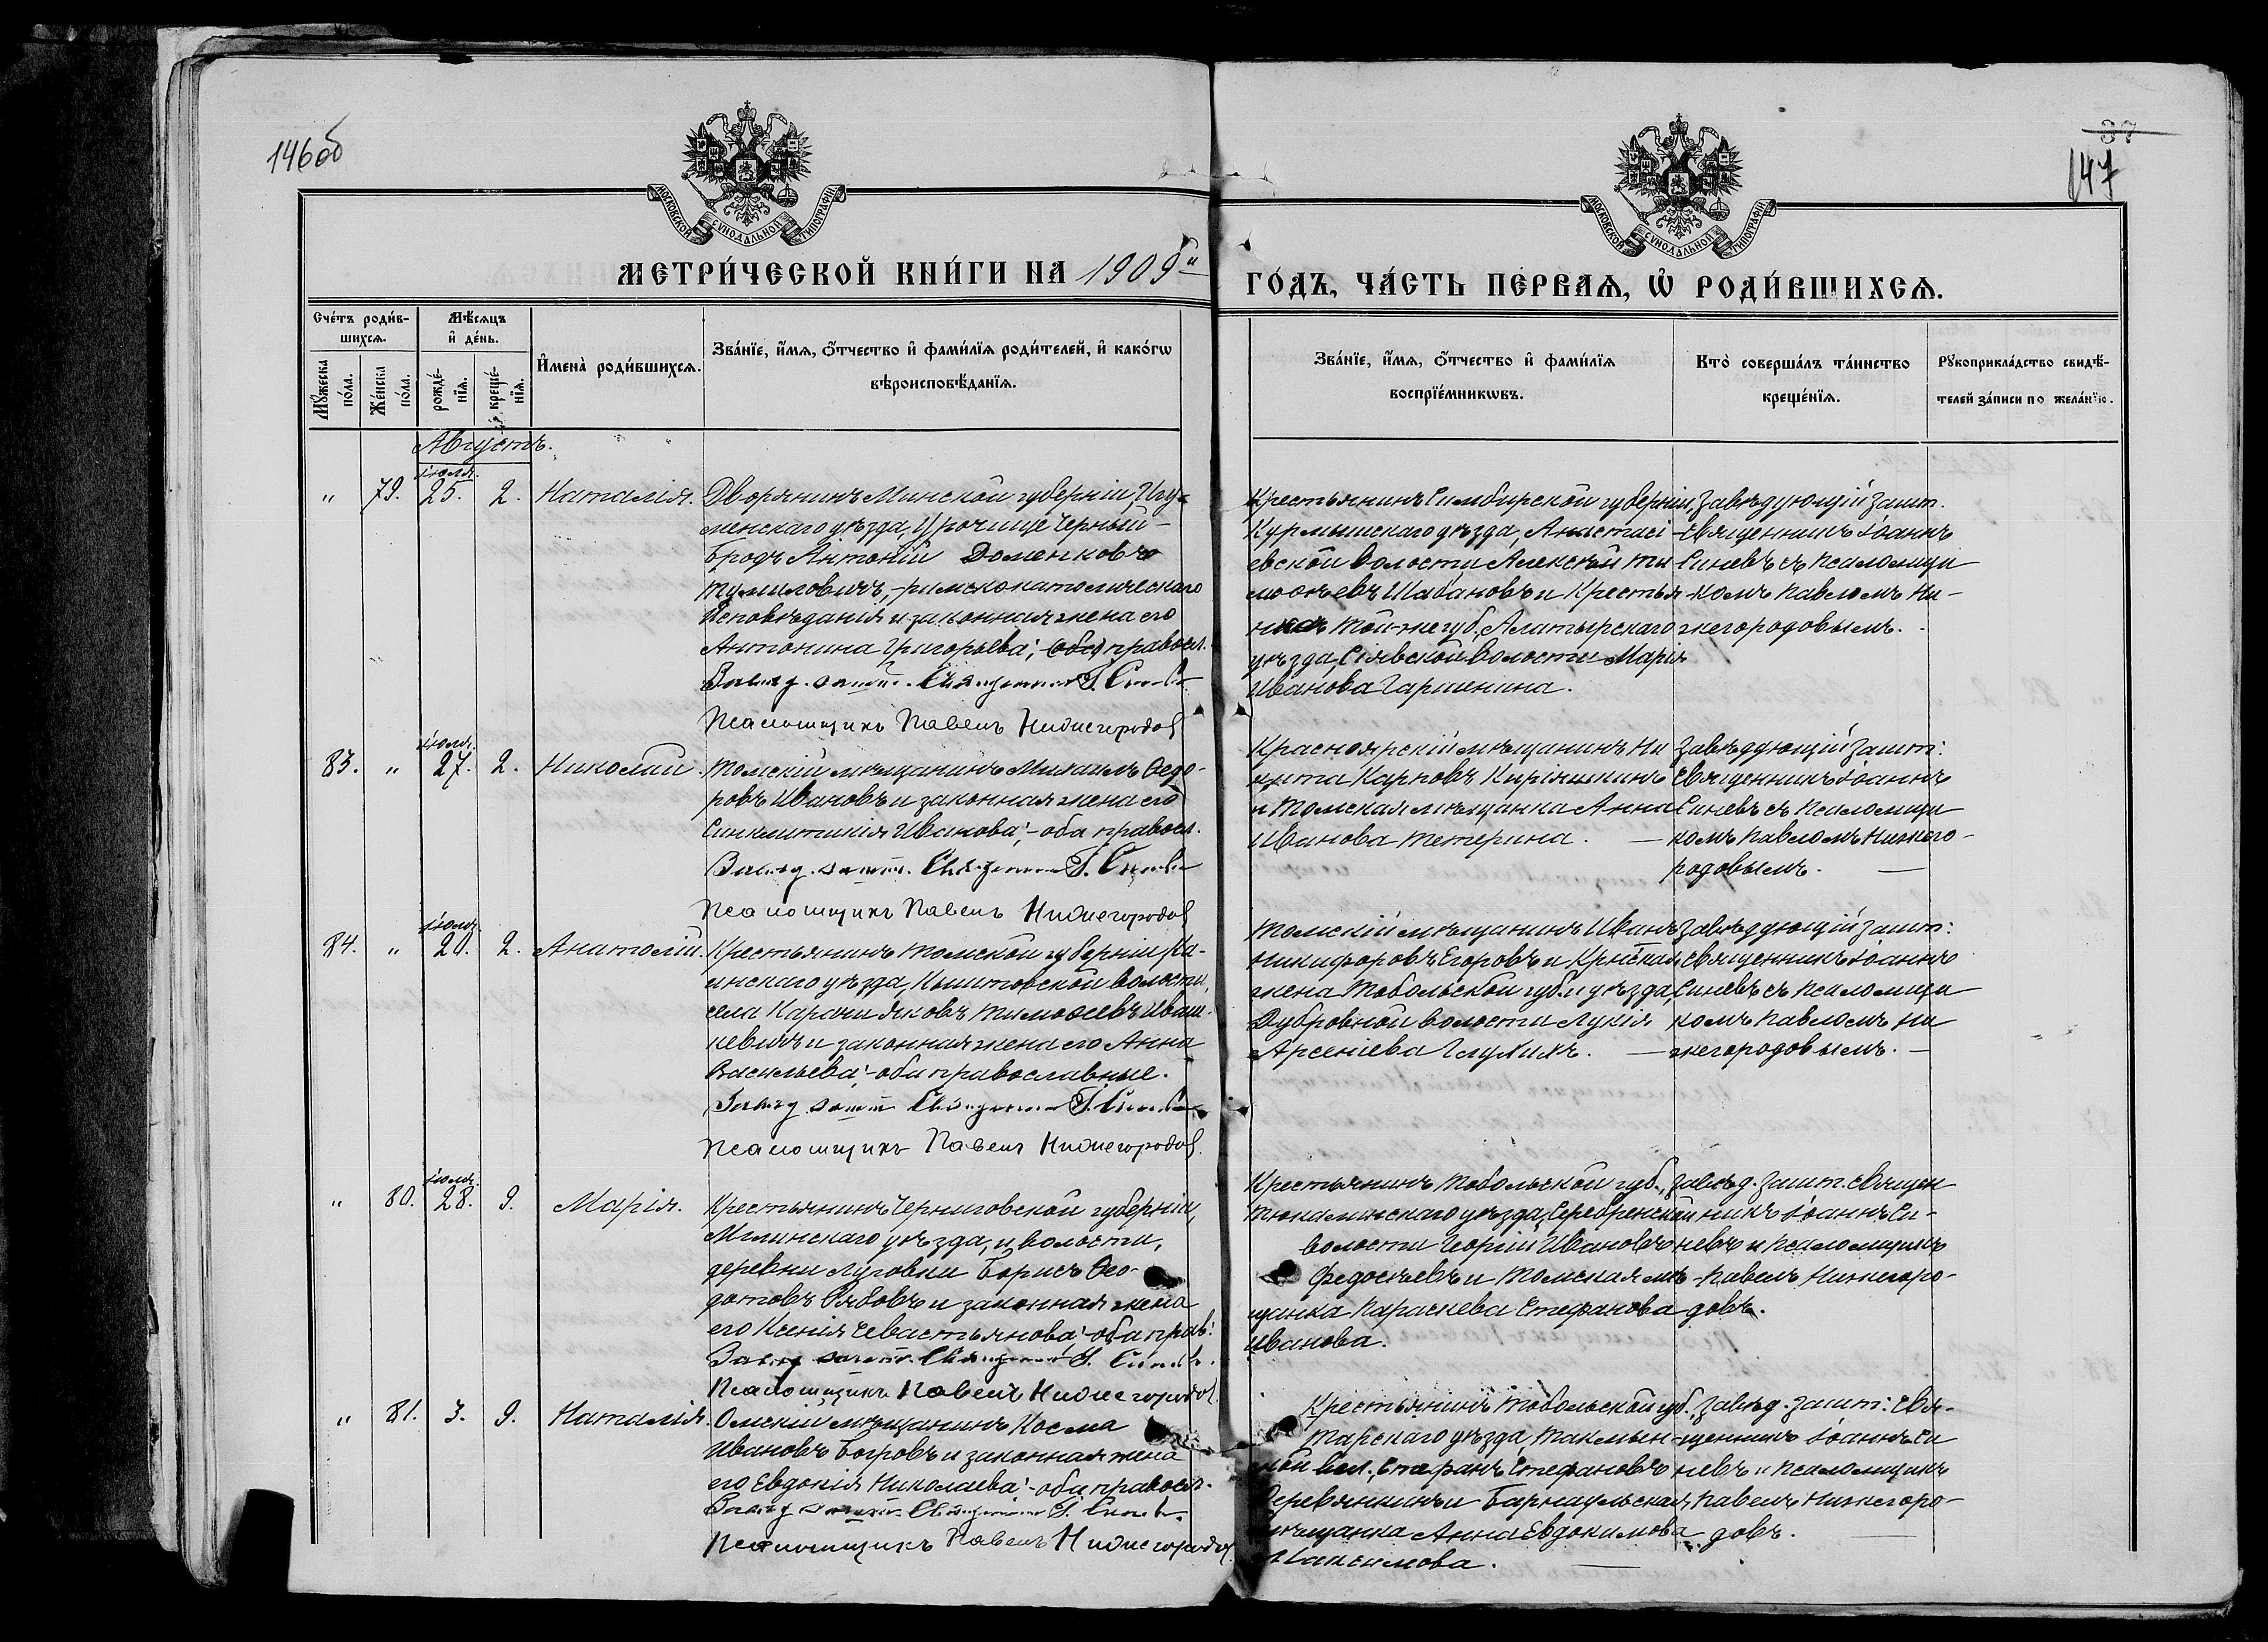 146об
37
147
МОСКОВСКОЙ СѴНОДАЛЬНОЙ ТИПОГРАФІИ
МОСКОВСКОЙ СѴНОДАЛЬНОЙ ТИПОГРАФІИ
МЕТРИ́ЧЕСКОЙ КНИ́ГИ НА 1909й
ГО́ДЪ, ЧА́СТЬ ПЕ́РВАѦ, Ѡ҆ РОДИ́ВШИХСѦ.
Сче́тъ роди́в-
шихсѧ.
Мꙋ́жеска по́ла.
Же́нска по́ла.
Мѣ́сѧцъ
и҆ де́нь.
рожде́-
нїѧ.
креще́-
нїѧ.
И҆мена̀ роди́вшихсѧ.
Зва́нїе, и҆́мѧ, ѻ҆́тчество и҆ фами́лїѧ роди́телей, и҆ како́гѡ
вѣроисповѣ́данїѧ.
Зва́нїе, и҆́мѧ, ѻ҆́тчество и҆ фами́лїѧ
воспрїе́мникѡвъ.
Кто̀ соверша́лъ та́инство
креще́нїѧ.
Рꙋкоприкла́дство свидѣ́-
телей за́писи по жела́нїю.
Августъ.
іюля.
" 79. 25. 2. Наталія.
Дворянинъ Минской губерніи, Игу-
менскаго уѣзда, Урочище Черный-
бродъ Антоній Доменковъ
Тумиловичъ, -римскокатолическаго
исповѣданія и законная жена его
Антонина Григорьева, (оба) правосл.
Завѣд. зашт. Священникъ І. Синевъ
Псаломщикъ Павелъ Нижегородов
Крестьянинъ Симбирской губерніи,
Курмышскаго уѣзда, Анастасі-
евской волости Алексѣй Ти
моѳеевъ Шабановъ и Крестья-
нка той-же губ., Алатырскаго
уѣзда, Сіявской волости Марія
Иванова Гаршенина.
Завѣдующій зашт.
Священникъ Іоаннъ
Синевъ съ псаломщи
комъ Павломъ Ни-
жегородовымъ.
іюля.
83. " 27. 2. Николай.
Томскій мѣщанинъ Михаилъ Ѳедо-
ровъ Ивановъ и законная жена его
Синклитикія Иванова, -оба правосл.
Завѣд. зашт. Священникъ І. Синевъ
Псаломщикъ Павелъ Нижегородов
Красноярскій мѣщанинъ Ни
кита Карповъ Кирияшкинъ
и Томская мѣщанка Анна
Иванова Тетерина.
Завѣдующій зашт:
Священникъ Іоаннъ
Синевъ съ псаломщи
комъ Павломъ Нижего-
родовымъ.
іюля.
84. " 20. 2. Анатолій.
Крестьянинъ Томской губерніи, Ка-
инскаго уѣзда, Кыштовской волости,
села Карачи Яковъ Тимоѳеевъ Иваш-
кевичъ и законная жена его Анна
Васильева, -оба православные.
Завѣд. зашт. Священникъ І. Синевъ
Псаломщикъ Павелъ Нижегородов.
Томскій мѣщанинъ Иванъ
Никифоровъ Егоровъ и Крнская
жена Тобольской губ. и уѣзда,
Дубровной волости Лукія
Арсеніева Глухихъ.
Завѣдующій зашт:
Священникъ Іоаннъ
Синевъ съ псаломщи
комъ Павломъ Ни
жегородовымъ.
іюля.
" 80. 28. 9. Марія.
Крестьянинъ Черниговской губерніи,
Мглинскаго уѣзда, и волости,
деревни Луговки Борисъ Ѳео-
дотовъ Рябовъ и законная жена
его Ксенія Севастьянова, -оба прав:
Завѣд. зашт. Священникъ І. Синевъ.
Псаломщикъ Павелъ Нижегородов.
Крестьянинъ Тобольской губ.,
Тюкалинскаго уѣзда, Серебренской
волости Георгій Ивановъ
Федосѣевъ и Томская мѣ-
щанка Параскева Стефанова
Иванова.
Завѣд. зашт. Священ
никъ Іоаннъ Си-
невъ и псаломщикъ
Павелъ Нижегоро-
довъ.
" 81. 3. 9. Наталія.
Омскій мѣщанинъ Косма
Ивановъ Богровъ и законная жена
его Евдокія Николаева, -оба правосл.
Завѣд. зашт. Священникъ І. Синевъ.
Псаломщикъ Павелъ Нижегородов.
Крестьянинъ Тобольской губ.,
Тарскаго уѣзда, Такмын-
ской вол., Стефанъ Стефановъ
Деревянкинъ и Барнаульская
мѣщанка Анна Евдокимова
Максимова.
Завѣд. зашт: Свя-
щенникъ Іоаннъ Си
невъ и псаломщикъ
Павелъ Нижегоро-
довъ.